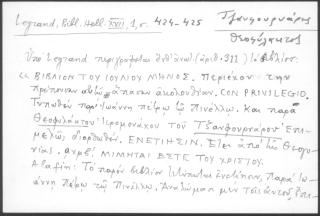 Legrand, Bibl. Hell. XVII, 1, σ. 424-425
Τζανφουρνάρος
Θεοφύλακτος
Ὑπὸ Legrand περιγράφεται (ἀριθ. 311) βιβλίον:
« ΒΙΒΛΙΟΝ ΤΟΥ ΙΟΥΛΙΟΥ ΜΗΝΟΣ. Περιέχον τὴν
πρέπουσαν αὐτῷ ἅπασαν ἀκολουθίαν. CON PRIVILEGIO.
Τυπωθὲν παρ' Ἰωάννῃ Πέτρῳ τῷ Πινέλλῳ. Καὶ παρὰ
Θεοφυλάκτου Ἱερομονάχου τοῦ Τζανφουρνάρου Ἐπι-
μελῶς διορθωθέν. ΕΝΕΤΙΗΣΙΝ. Ἔτει ἀπὸ τῆς Θεογο-
νίας. ΜΙΜΗΤΑΙ ΕΣΤΕ ΤΟΥ ΧΡΙΣΤΟΥ.
A la fin: Τὸ παρὸν βιβλίον Ἐνετίησιν, Παρὰ Ἰω-
άννῃ Πέτρῳ τῷ Πινέλλῳ. Ἀναλώμασι μὲν τοῖς αὐτοῦ,